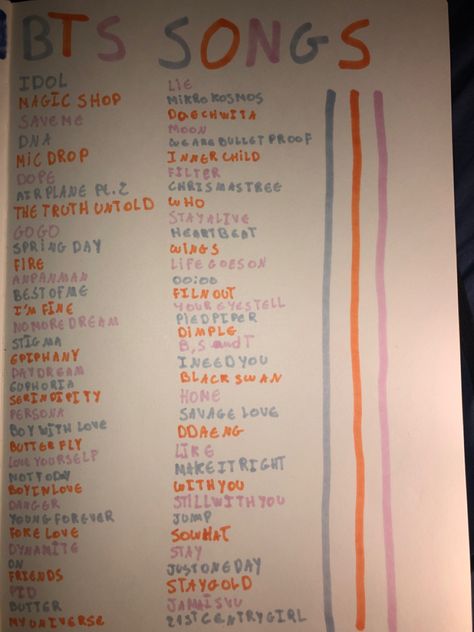 BTS SONGS
IDOL
MAGIC SHOP
SAVE ME
DNA
MIC DROP
DOPE
AIRPLANE PT.2
THE TRUTH UNTOLD
GO GO
SPRING DAY
FIRE
ANPANMAN
BEST OF ME
I'M FINE
NO MORE DREAM
STIGMA
EPIPHANY
DAYDREAM
EUPHORIA
SERINDIPITY
PERSONA
BOY WITH LOVE
BUTTERFLY
LOVE YOURSELF
NOT TODAY
BOY IN LOVE
DANGER
YOUNG FOREVER
FAKE LOVE
DYNAMITE
ON
FRIENDS
BUTTER
MY UNIVERSE
LIE
MIKROKOSMOS
DAECHWITA
MOON
WE ARE BULLET PROOF
INNER CHILD
FILTER
CHRISMAS TREE
WHO
STAY ALIVE
HEARTBEAT
WINGS
LIFE GOES ON
00:00
FILM OUT
YOUR EYES TELL
PIED PIPER
DIMPLE
B,S and T
I NEED YOU
BLACK SWAN
HOME
SAVAGE LOVE
DDAENG
LIKE
MAKE IT RIGHT
WITH YOU
STILL WITH YOU
JUMP
SO WHAT
STAY
JUST ONE DAY
STAY GOLD
JAMAIS VU
21ST CENTRY GIRL